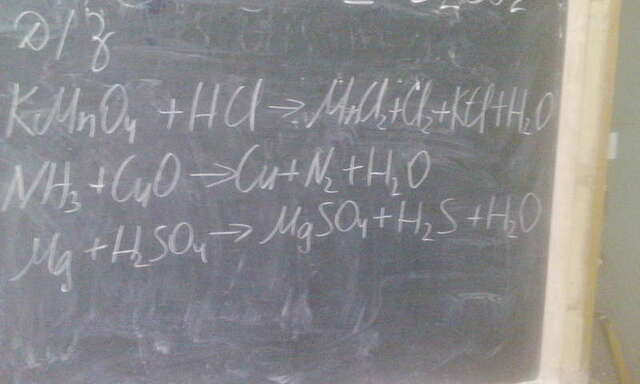 Д/з
KMnO₄ + HCl → MnCl₂ + Cl₂ + KCl + H₂O
NH₃ + CuO → Cu + N₂ + H₂O
Mg + H₂SO₄ → MgSO₄ + H₂S + H₂O